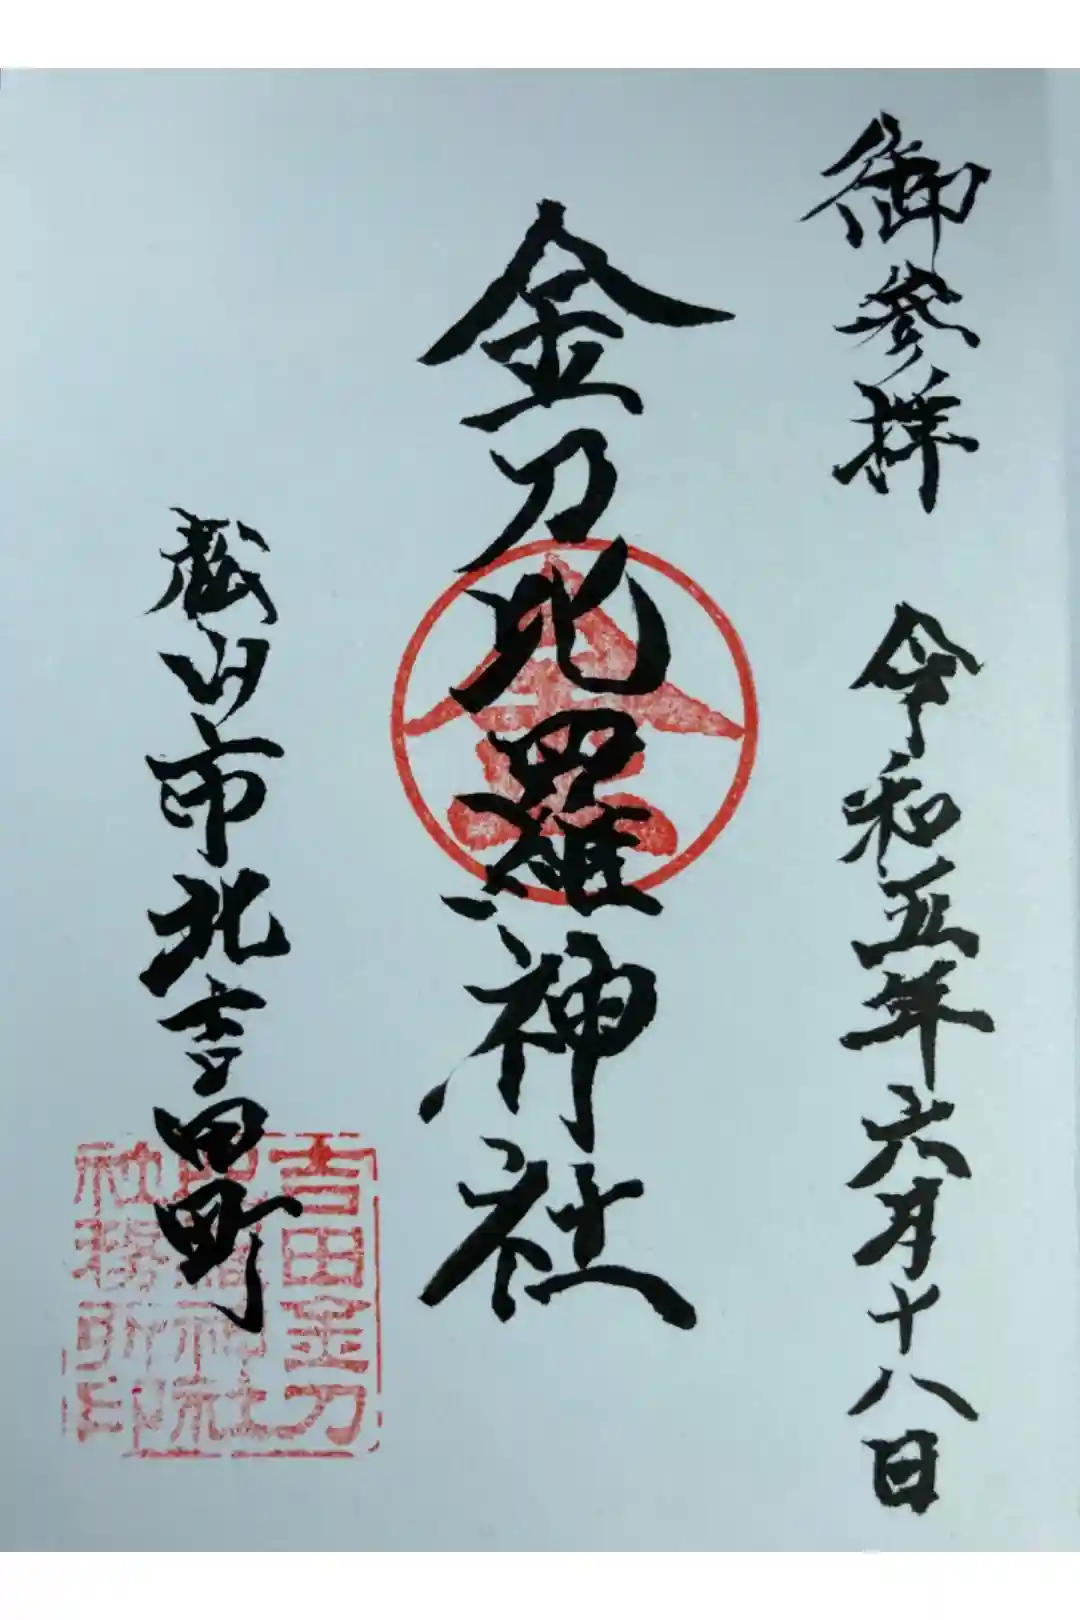 御参拝 令和五年六月十八日
金刀比羅神社
金
松山市北吉田町
吉田金刀
比羅神社
社務所印